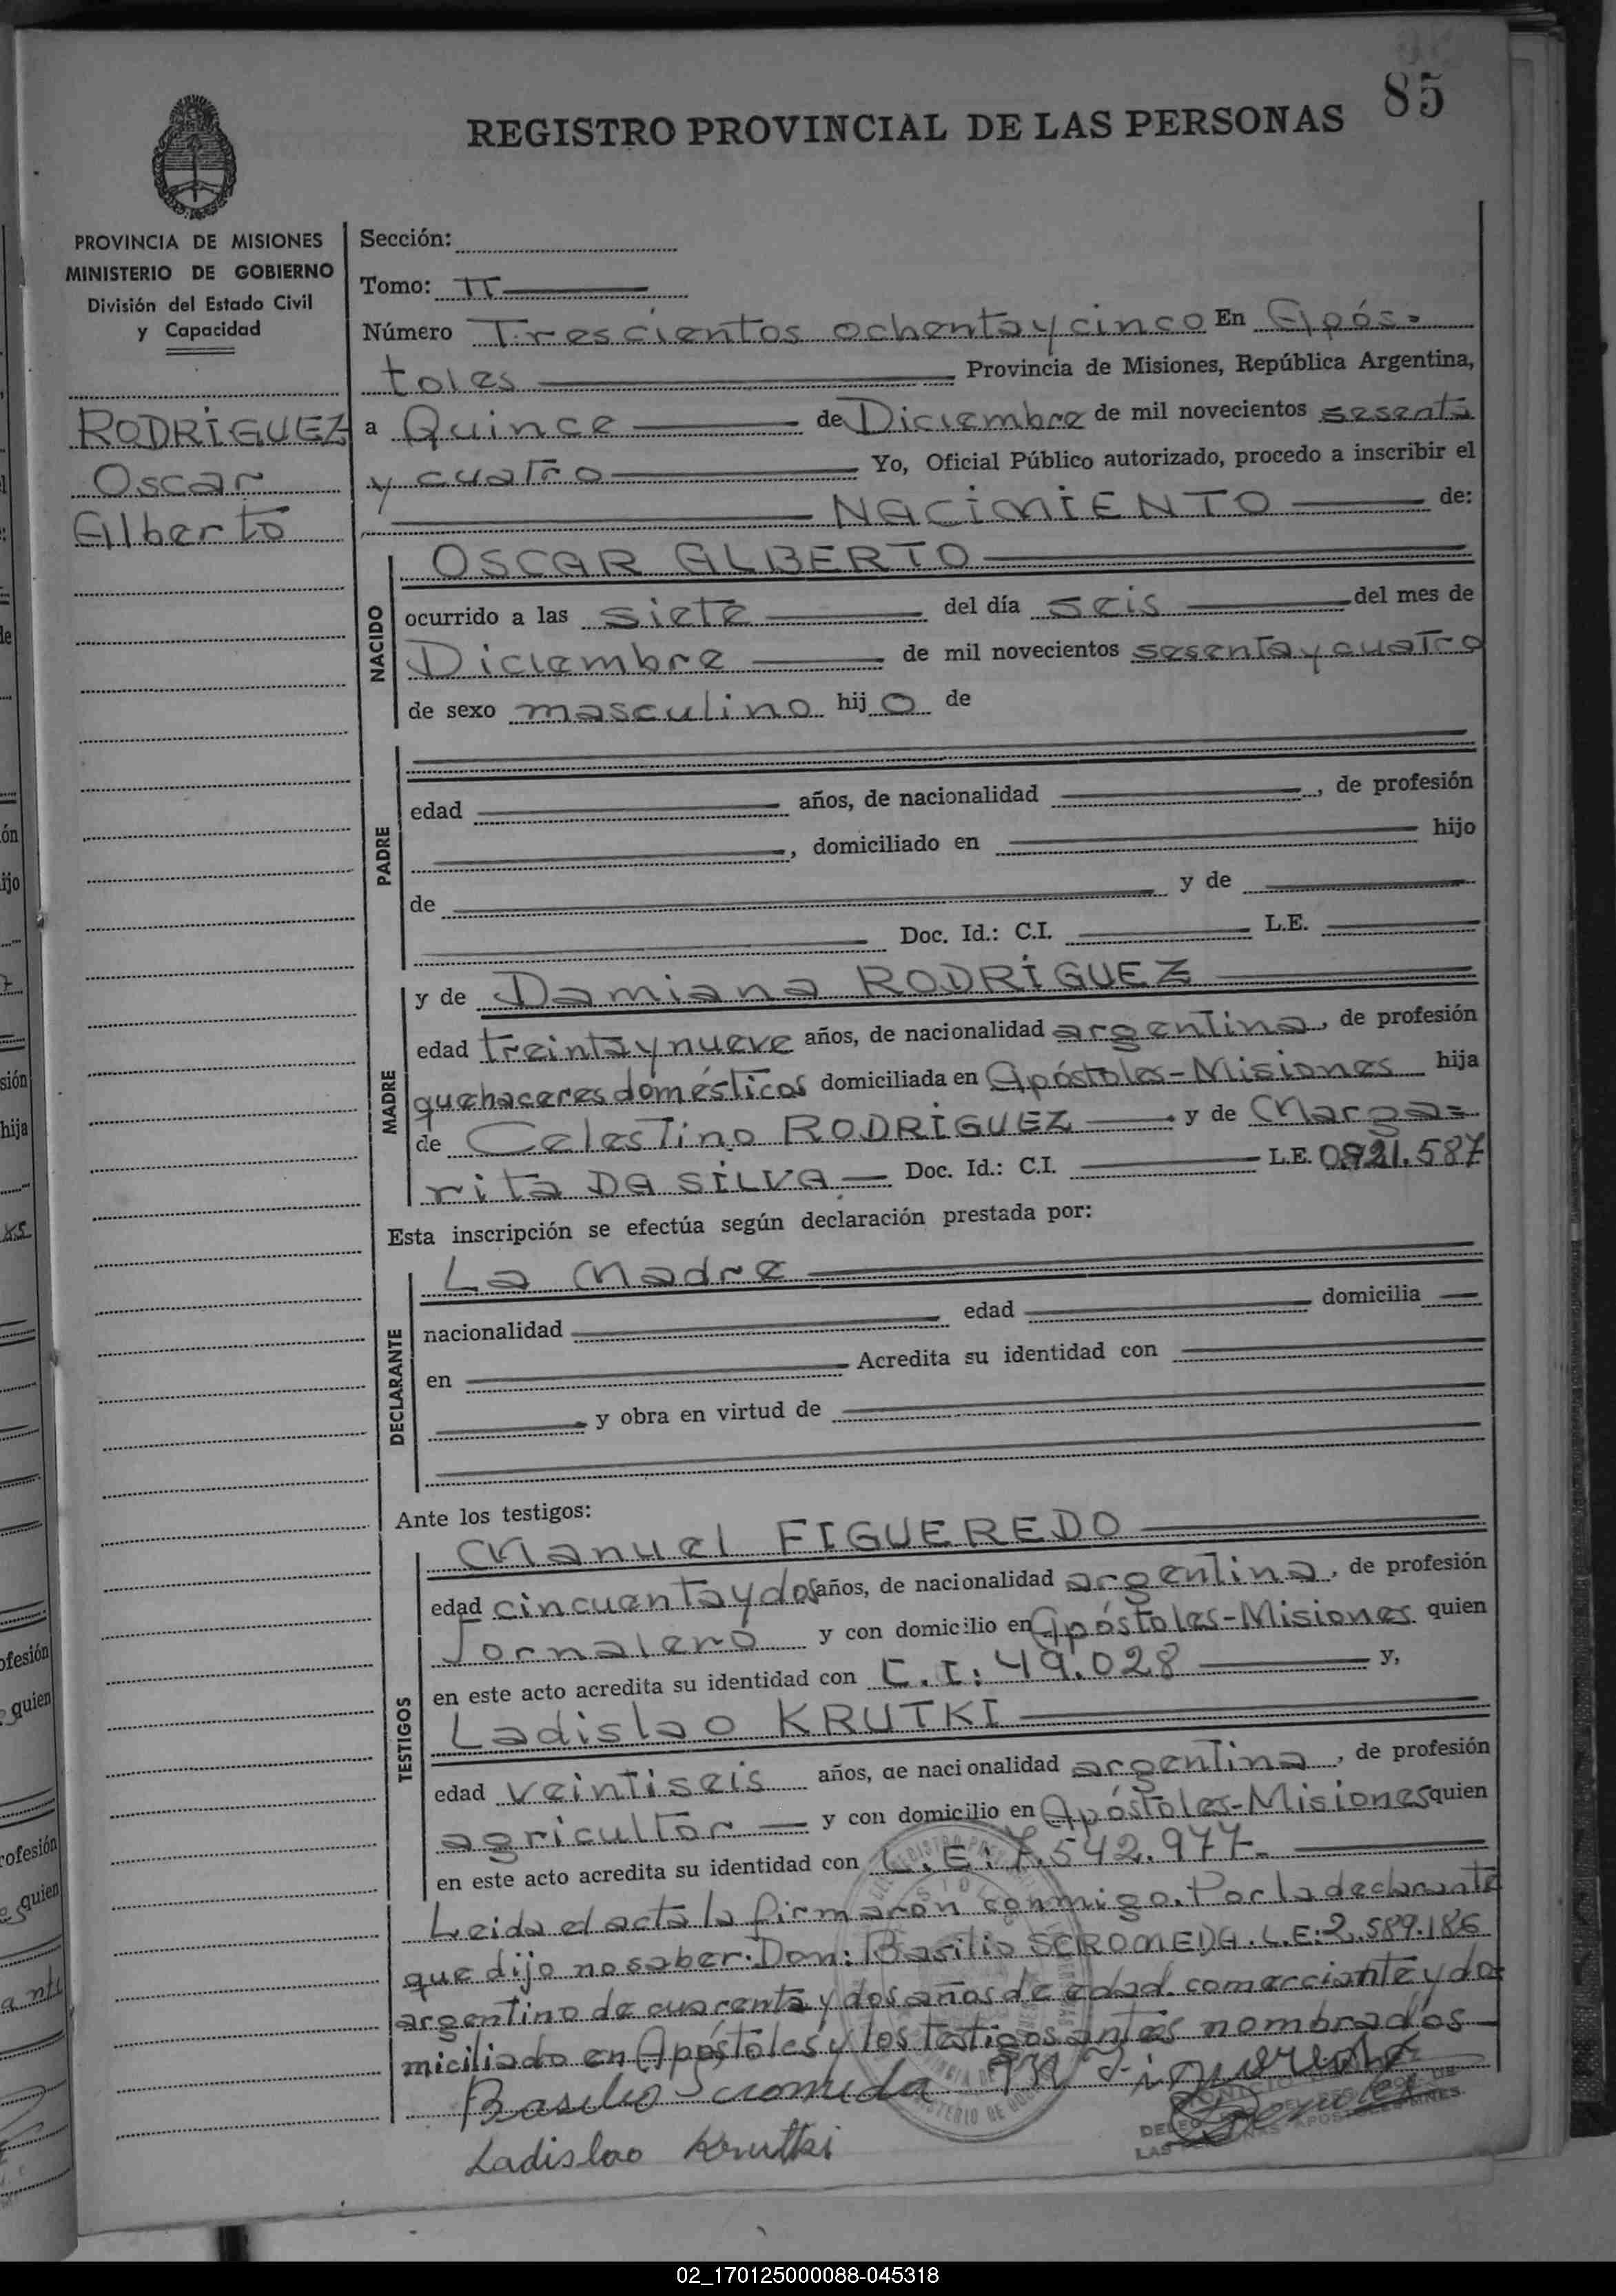 85
REGISTRO PROVINCIAL DE LAS PERSONAS
PROVINCIA DE MISIONES
MINISTERIO DE GOBIERNO
División del Estado Civil
y Capacidad
RODRÍGUEZ
Oscar
Alberto
Sección:
Tomo: II
Número Trescientos ochenta y cinco En Após-
toles Provincia de Misiones, República Argentina,
a Quince de Diciembre de mil novecientos sesenta
y cuatro Yo, Oficial Público autorizado, procedo a inscribir el
NACIMIENTO de:
NACIDO
OSCAR ALBERTO
ocurrido a las siete del día seis del mes de
Diciembre de mil novecientos sesenta y cuatro
de sexo masculino hijo de
PADRE
edad años, de nacionalidad , de profesión
, domiciliado en hijo
de y de
Doc. Id.: C.I. L.E.
MADRE
y de Damiana RODRÍGUEZ
edad treinta y nueve años, de nacionalidad argentina, de profesión
quehaceres domésticos domiciliada en Apóstoles-Misiones hija
de Celestino RODRÍGUEZ y de Marga=
rita DA SILVA Doc. Id.: C.I. L.E. 0.921.587
Esta inscripción se efectúa según declaración prestada por:
DECLARANTE
La Madre
nacionalidad edad domicilia
en Acredita su identidad con
y obra en virtud de
Ante los testigos:
TESTIGOS
Manuel FIGUEREDO
edad cincuenta y dos años, de nacionalidad argentina, de profesión
Jornalero y con domicilio en Apóstoles-Misiones quien
en este acto acredita su identidad con C.I: 49.028 y,
Ladislao KRUTKI
edad veintiseis años, de nacionalidad argentina, de profesión
agricultor y con domicilio en Apóstoles-Misiones quien
en este acto acredita su identidad con L.E: 7.542.977-
Leida el acta la firmarón conmigo. Por la declarante
que dijo no saber: Don: Basilio SCROMEDA. L.E: 2.589.186
argentino de cuarenta y dos años de edad. comerciante y do-
miciliado en Apóstoles y los testigos antes nombrados
Basilio Scromeda M Figueredo
Ladislao Krutki
02_170125000088-045318